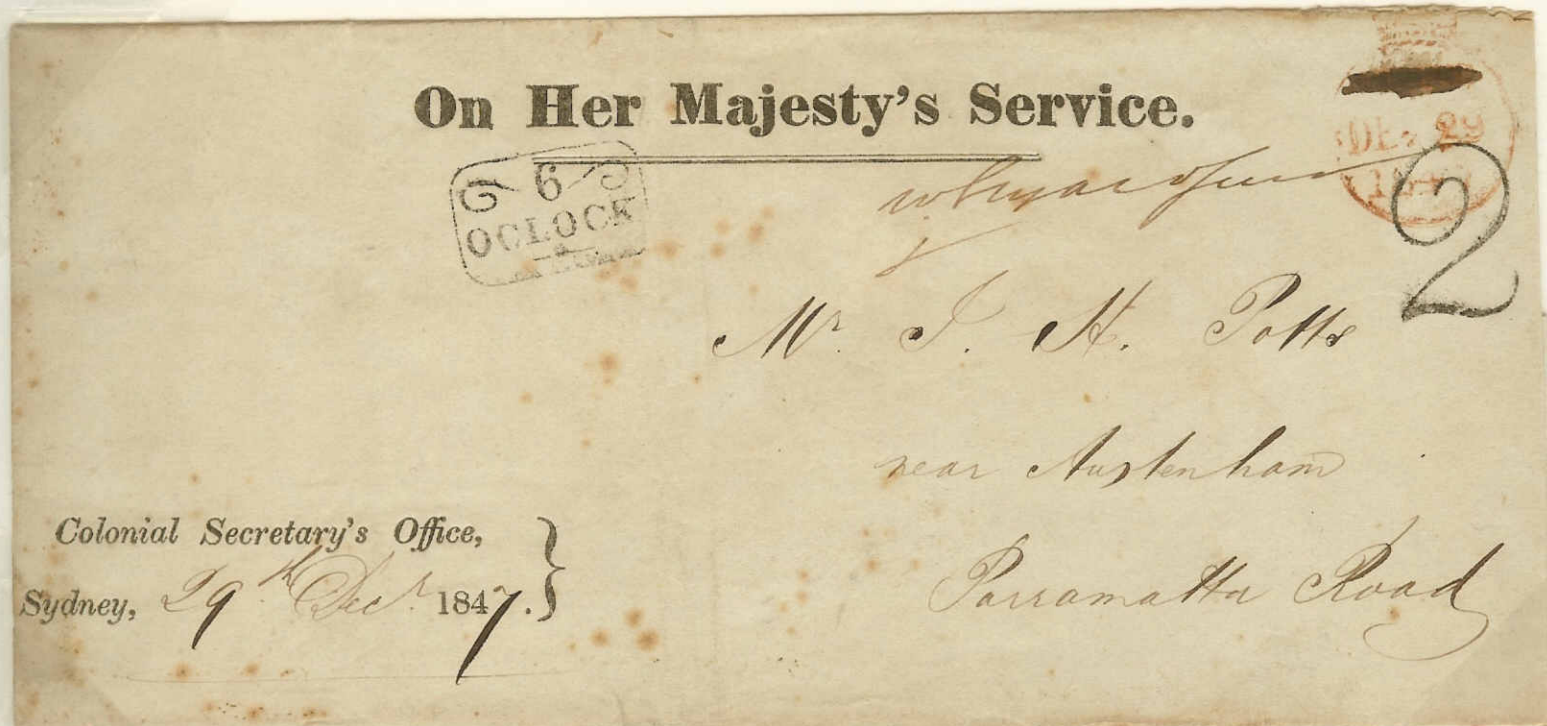 On Her Majesty's Service.
6
OCLOCK
29
2
Mr. J. H. Potts
near Austenham
Parramatta Road
Colonial Secretary's Office,
Sydney, 29th Decr. 1847.